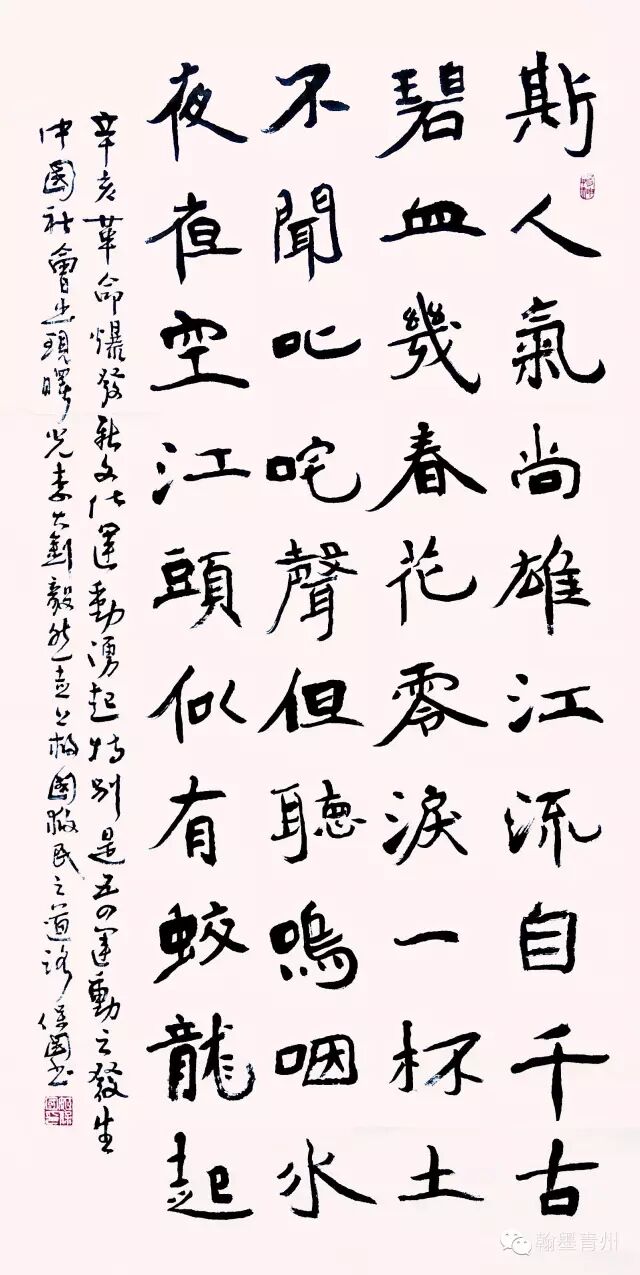 斯人氣尚雄江流自千古
碧血幾春花零淚一杯土
不聞叱咤聲但聽嗚咽水
夜夜空江頭似有蛟龍起
辛亥革命爆發新文化運動湧起特別是五四運動之發生
中國社會出現曙光李大釗毅然走上救國救民之道路 保國書
翰墨青州